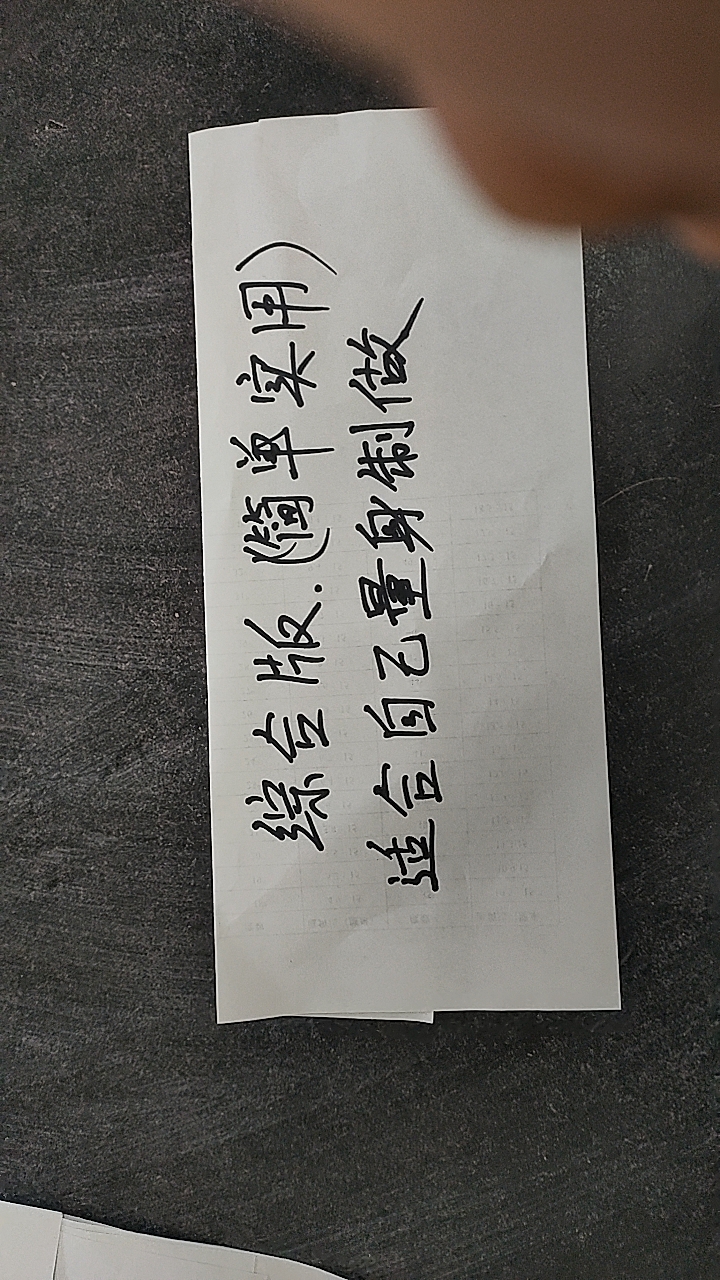 综合版.(简单实用)
适合自己量身制做